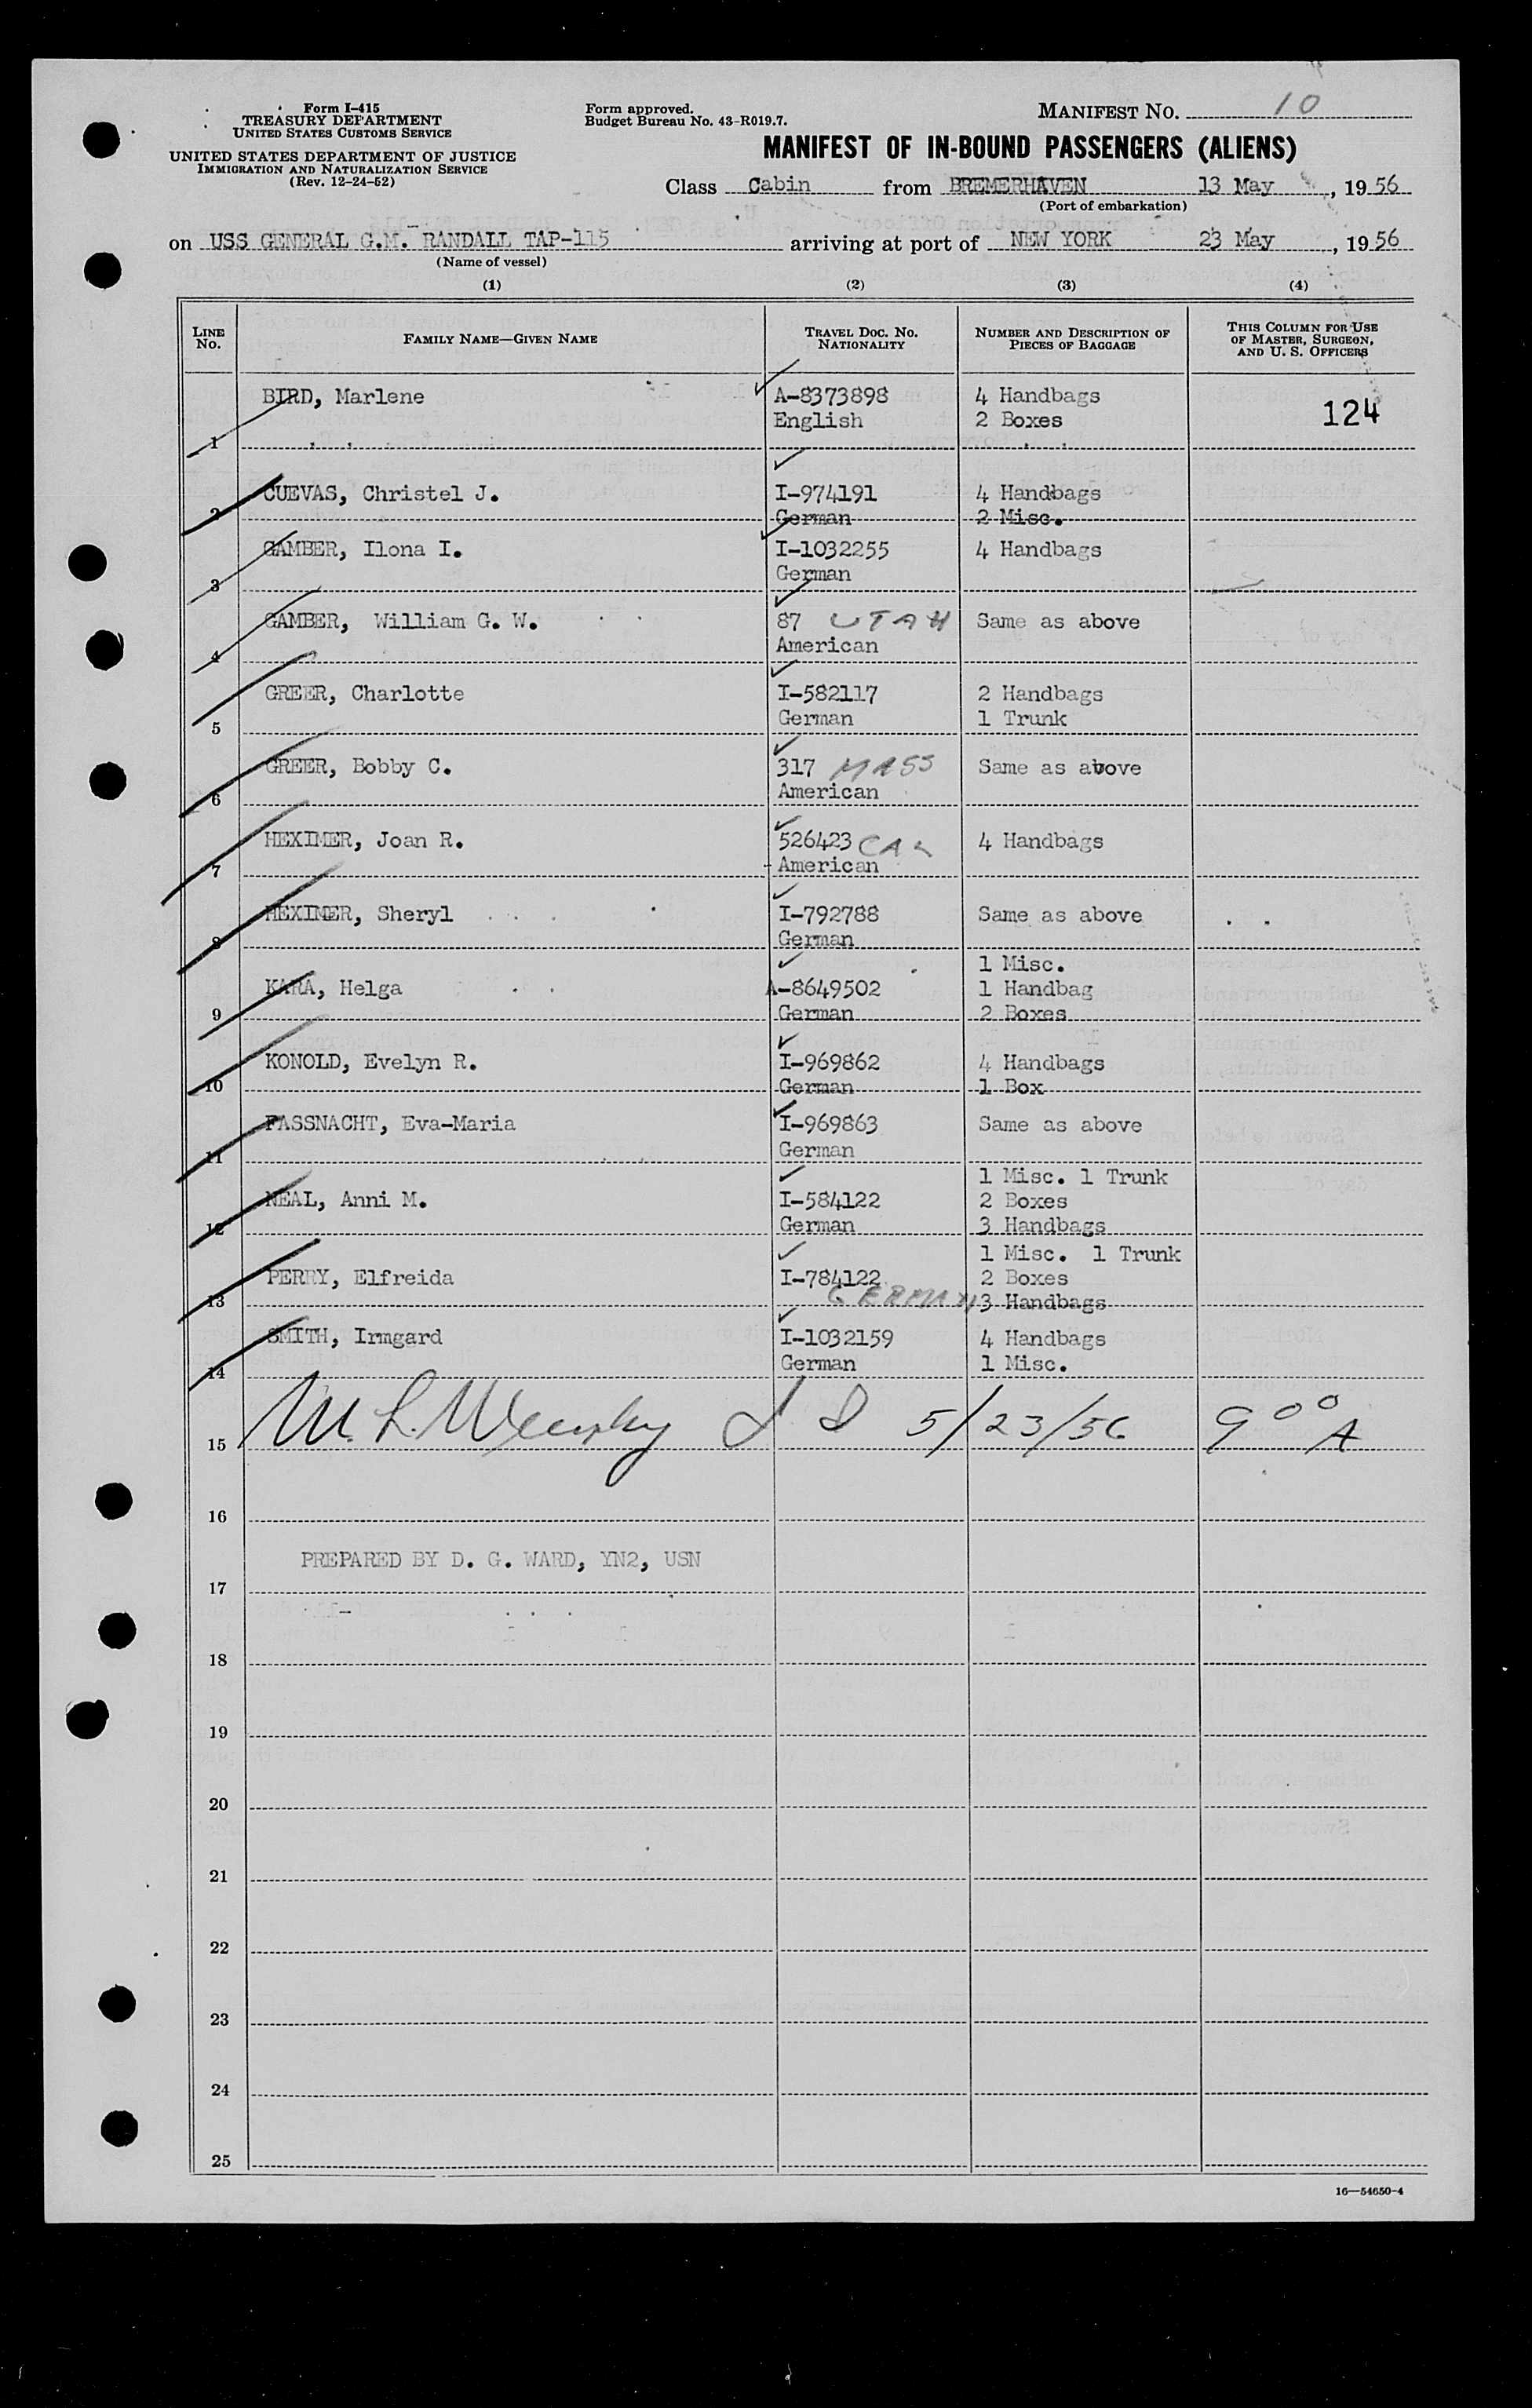 Form I-415
TREASURY DEPARTMENT
UNITED STATES CUSTOMS SERVICE
UNITED STATES DEPARTMENT OF JUSTICE
IMMIGRATION AND NATURALIZATION SERVICE
(Rev. 12-24-52)
Form approved.
Budget Bureau No. 43-R019.7.
MANIFEST NO. 10
MANIFEST OF IN-BOUND PASSENGERS (ALIENS)
Class Cabin from BREMERHAVEN 13 May, 1956
(Port of embarkation)
on USS GENERAL G.M. RANDALL TAP-115 arriving at port of NEW YORK 23 May, 1956
(Name of vessel)
(1) (2) (3) (4)
LINE NO. FAMILY NAME—GIVEN NAME TRAVEL DOC. NO. NATIONALITY NUMBER AND DESCRIPTION OF PIECES OF BAGGAGE THIS COLUMN FOR USE OF MASTER, SURGEON, AND U. S. OFFICERS
BIRD, Marlene A-8373898 4 Handbags 124
1 English 2 Boxes
CUEVAS, Christel J. I-974191 4 Handbags
2 German 2 Misc.
GAMBER, Ilona I. I-1032255 4 Handbags
3 German
GAMBER, William G. W. 87 UTAH Same as above
4 American
GREER, Charlotte I-582117 2 Handbags
5 German 1 Trunk
GREER, Bobby C. 317 MASS Same as above
6 American
HEXIMER, Joan R. 526423 CAL 4 Handbags
7 American
HEXIMER, Sheryl I-792788 Same as above
8 German
1 Misc.
KARA, Helga A-8649502 1 Handbag
9 German 2 Boxes
KONOLD, Evelyn R. I-969862 4 Handbags
10 German 1 Box
FASSNACHT, Eva-Maria I-969863 Same as above
11 German
1 Misc. 1 Trunk
NEAL, Anni M. I-584122 2 Boxes
12 German 3 Handbags
1 Misc. 1 Trunk
PERRY, Elfreida I-784122 2 Boxes
13 GERMAN 3 Handbags
SMITH, Irmgard I-1032159 4 Handbags
14 German 1 Misc.
15 M. L. 5/23/56 9 00 A
16
PREPARED BY D. G. WARD, YN2, USN
17
18
19
20
21
22
23
24
25
16—54650-4